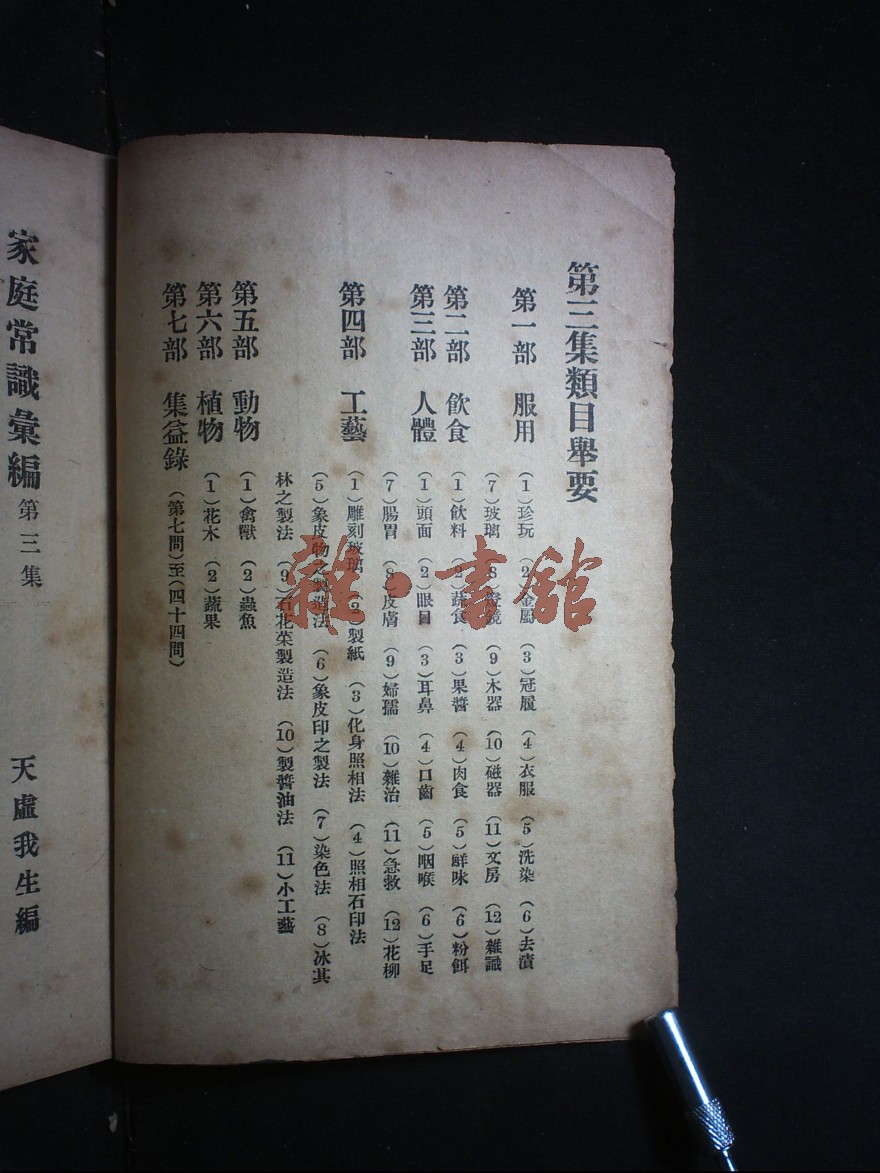 第三集類目舉要
第一部 服用 (1)珍玩 (2)金屬 (3)冠履 (4)衣服 (5)洗染 (6)去漬
(7)玻璃 (8)燈鏡 (9)木器 (10)磁器 (11)文房 (12)雜識
第二部 飲食 (1)飲料 (2)蔬食 (3)果醬 (4)肉食 (5)鮮味 (6)粉餌
第三部 人體 (1)頭面 (2)眼目 (3)耳鼻 (4)口齒 (5)咽喉 (6)手足
(7)腸胃 (8)皮膚 (9)婦孺 (10)雜治 (11)急救 (12)花柳
第四部 工藝 (1)雕刻玻璃 (2)製紙 (3)化身照相法 (4)照相石印法
(5)象皮物之製造法 (6)象皮印之製法 (7)染色法 (8)冰其
林之製法 (9)石花菜製造法 (10)製醬油法 (11)小工藝
第五部 動物 (1)禽獸 (2)蟲魚
第六部 植物 (1)花木 (2)蔬果
第七部 集益錄 (第七問)至(四十四問)
家庭常識彙編 第三集 天虛我生編
雜·書館